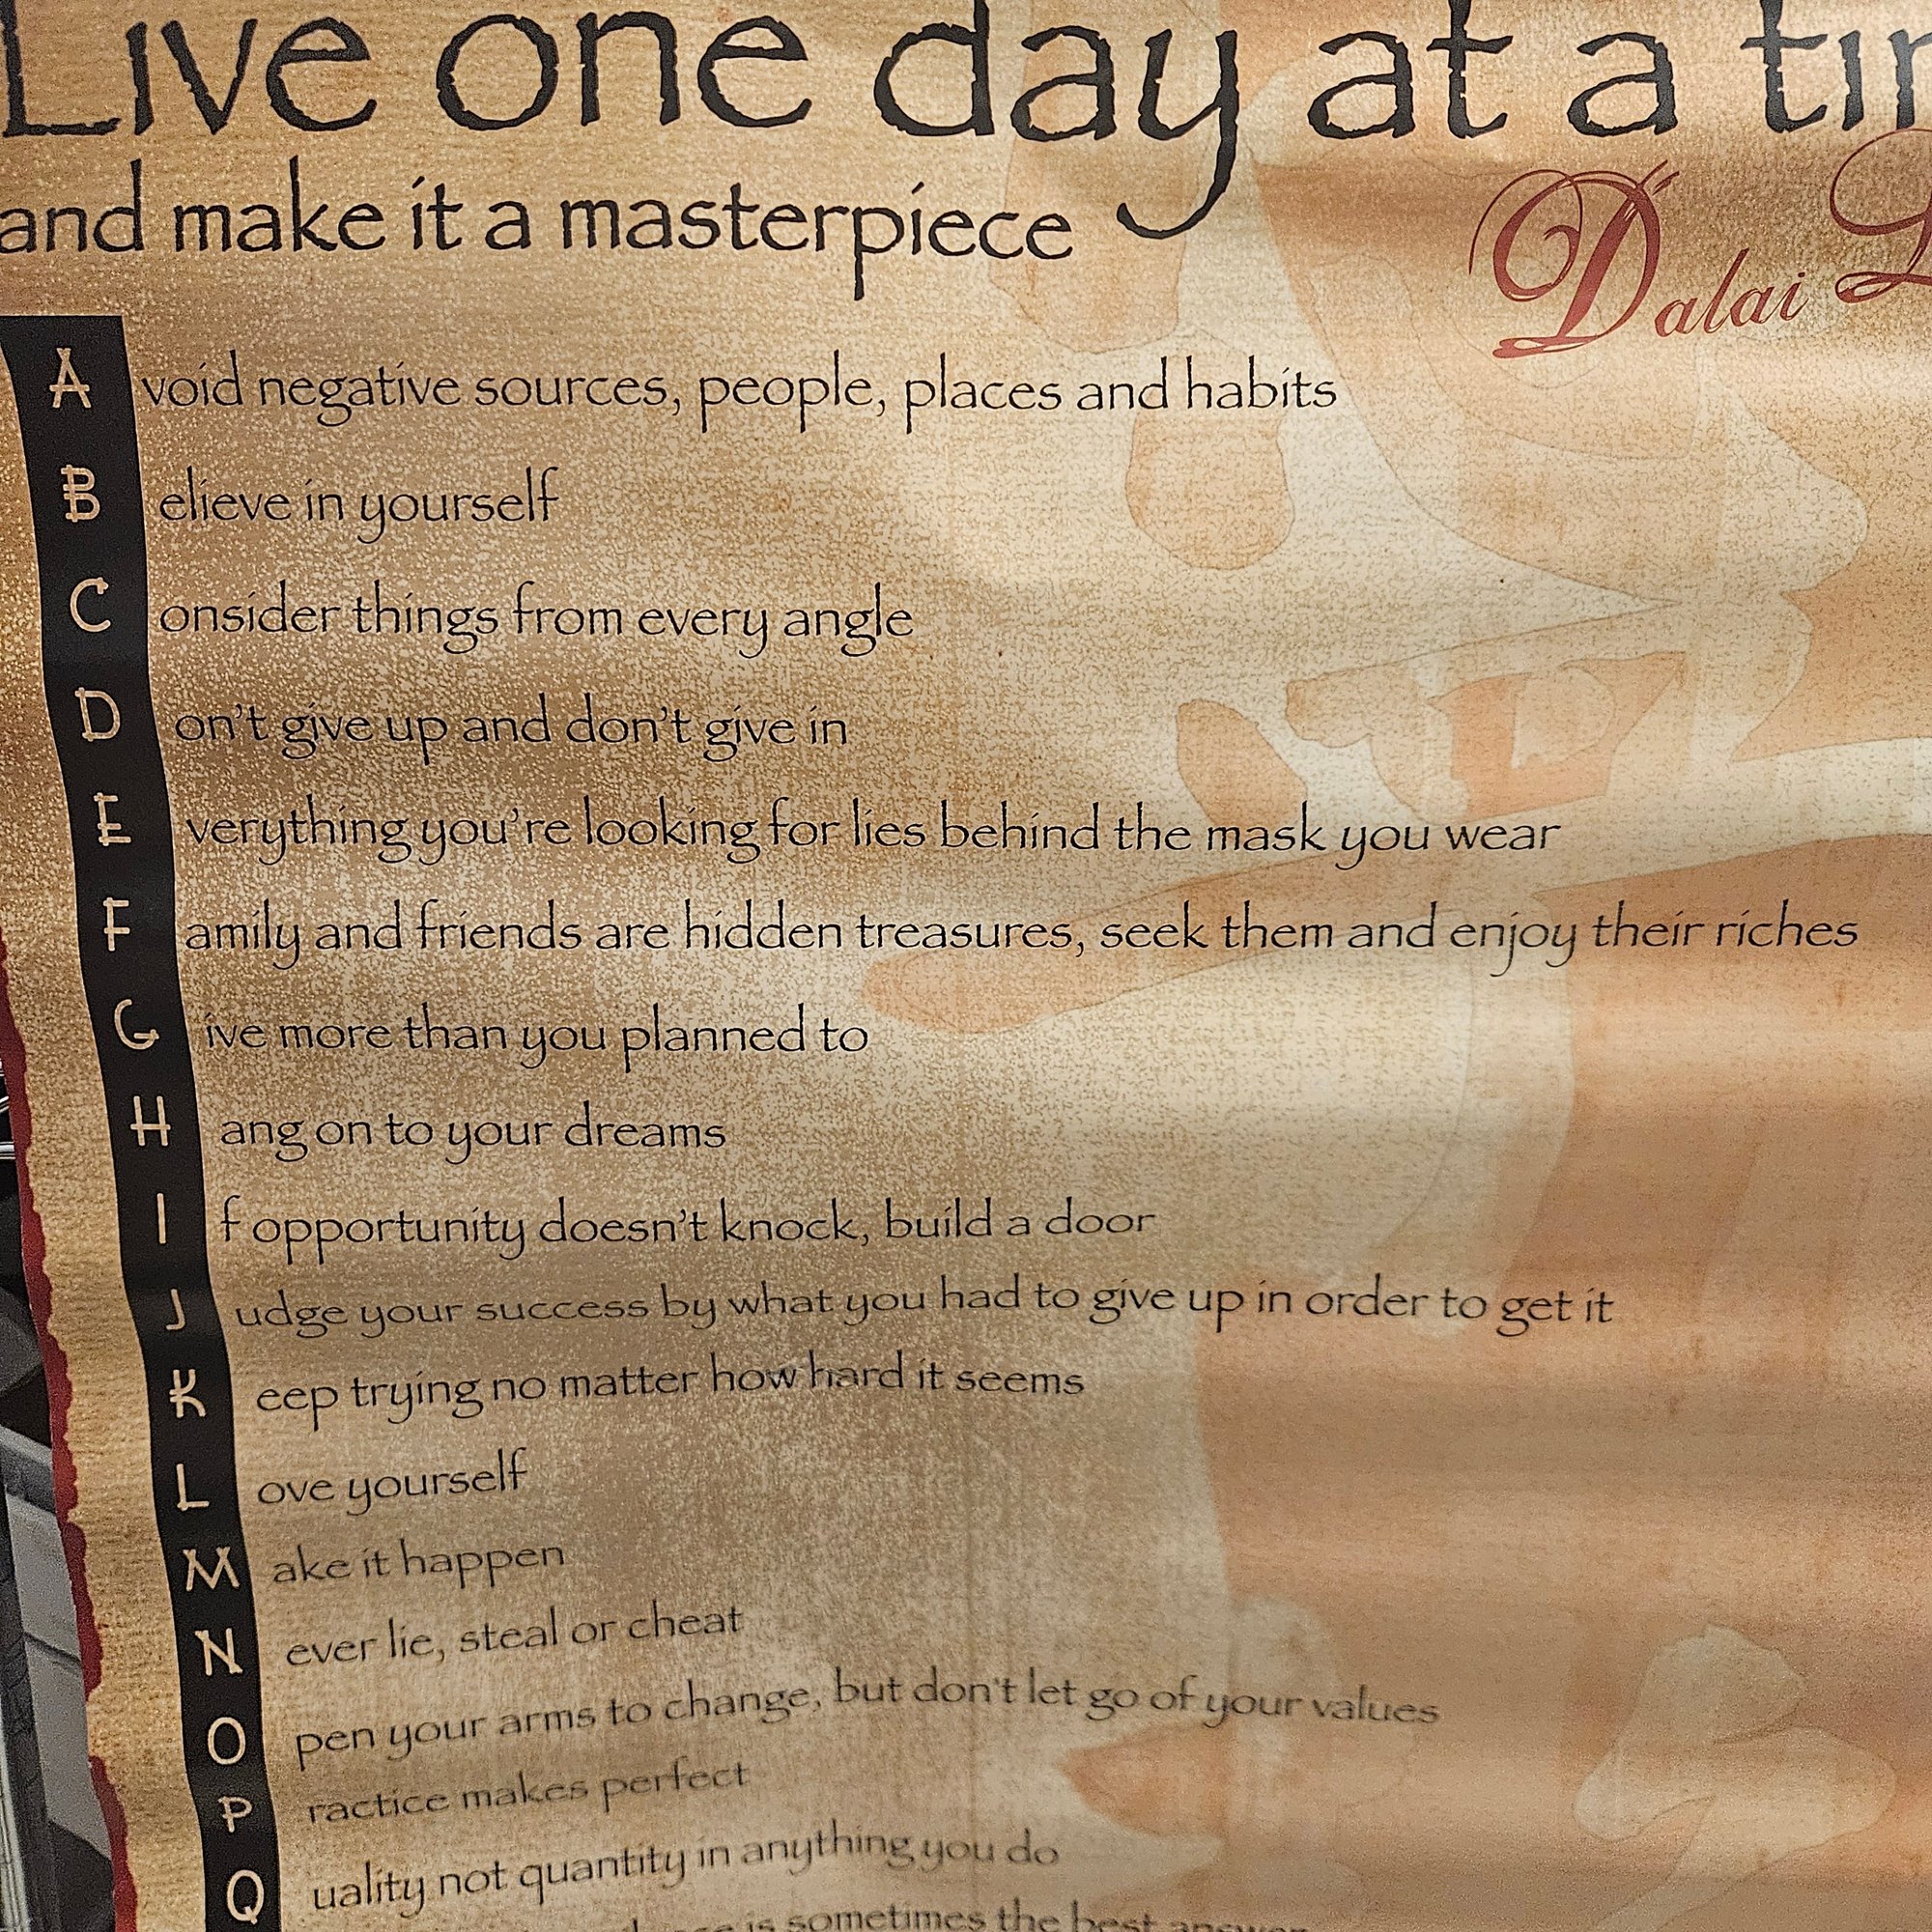 Live one day at a
and make it a masterpiece
Dalai
Avoid negative sources, people, places and habits
Believe in yourself
Consider things from every angle
Don't give up and don't give in
Everything you're looking for lies behind the mask you wear
Family and friends are hidden treasures, seek them and enjoy their riches
Give more than you planned to
Hang on to your dreams
If opportunity doesn't knock, build a door
Judge your success by what you had to give up in order to get it
Keep trying no matter how hard it seems
Love yourself
Make it happen
Never lie, steal or cheat
Open your arms to change, but don't let go of your values
Practice makes perfect
Quality not quantity in anything you do
is sometimes the best answer